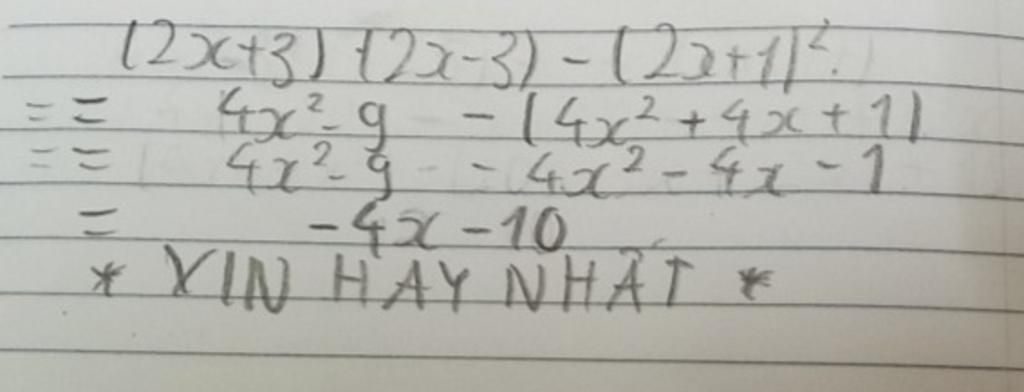 (2x+3) (2x-3) - (2x+1)².
= = 4x²-9 - (4x²+4x+1)
= = 4x²-9 - 4x²-4x-1
= -4x-10
* XIN HAY NHẤT *